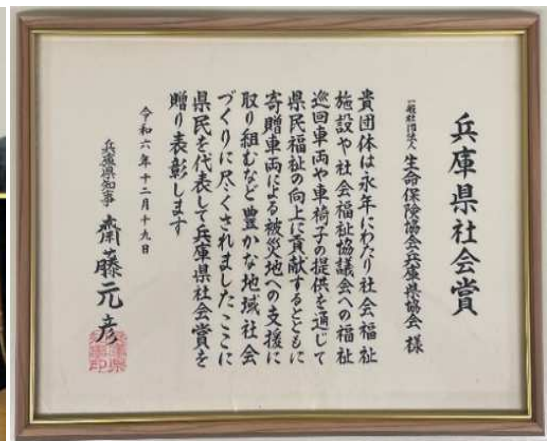 兵庫県社会賞
一般社団法人 生命保険協会兵庫県協会 様
貴団体は永年にわたり社会福祉
施設や社会福祉協議会への福祉
巡回車両や車椅子の提供を通じて
県民福祉の向上に貢献するとともに
寄贈車両による被災地への支援に
取り組むなど豊かな地域社会
づくりに尽くされましたここに
県民を代表して兵庫県社会賞を
贈り表彰します
令和六年十二月十九日
兵庫県知事 齋藤元彦